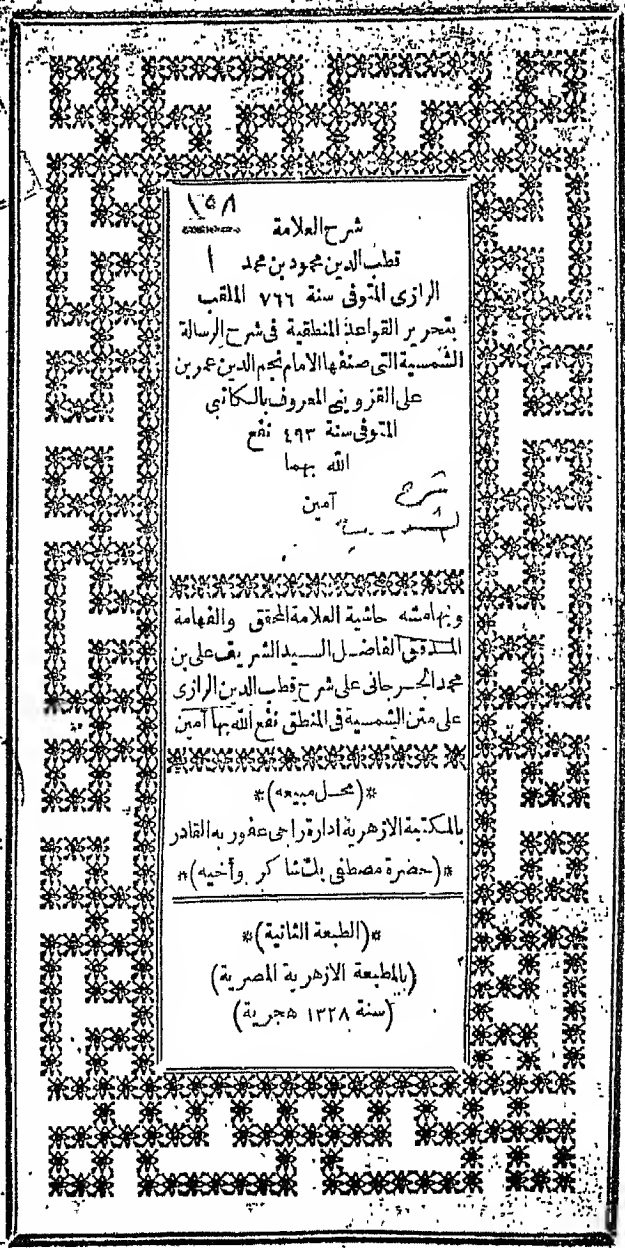 ١٥٨
شرح العلامة
قطب الدين محمود بن محمد
الرازى المتوفى سنة ٧٦٦ الملقب
بتحرير القواعد المنطقية فى شرح الرسالة
الشمسية التى صنفها الامام نجم الدين عمر بن
على القزوينى المعروف بالكاتبى
المتوفى سنة ٤٩٣ نفع
الله بهما
آمين
شرح
وبهامشه حاشية العلامة المحقق والفهامة
المدقق الفاضل السيد الشريف على بن
محمد الجرجانى على شرح قطب الدين الرازى
على متن الشمسية فى المنطق نفع الله بها آمين
*(محل مبيعه)*
بالمكتبة الازهرية ادارة راجى عفو ربه القادر
*(حضرة مصطفى بك شاكر وأخيه)*
*(الطبعة الثانية)*
(بالمطبعة الازهرية المصرية)
(سنة ١٣٢٨ هجرية)